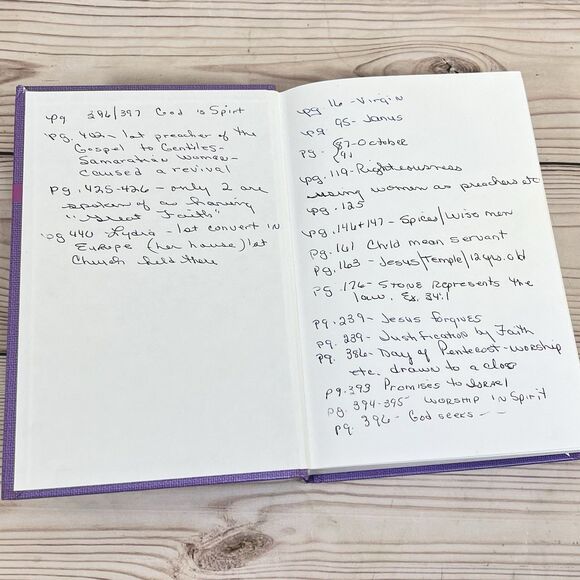 pg 396/397 God is Spirt
pg. 400 - 1st preacher of the
Gospel to Gentiles -
Samaratan Woman -
caused a revival
pg. 425-426 - only 2 are
spoken of as having
"Great Faith"
pg 440 Lydia - 1st convert in
Europe (her house) 1st
Church held there
pg. 16 - Virgin
pg 95 - Janus
pg - 87 - October
91
pg. 119 - Righteousness
using women as preachers etc
pg. 125
pg. 146+147 - Spices/Wise men
pg. 161 Child mean servant
pg. 163 - Jesus/Temple/12 yrs. old
pg. 176 - Stone Represents the
law. Ex. 34:1
pg. 239 - Jesus forgives
pg. 289 - Justification by Faith
pg. 386 - Day of Pentecost - worship
etc. drawn to a close
pg. 393 Promises to Israel
pg. 394-395 - worship in Spirit
pg. 396 - God seeks - -